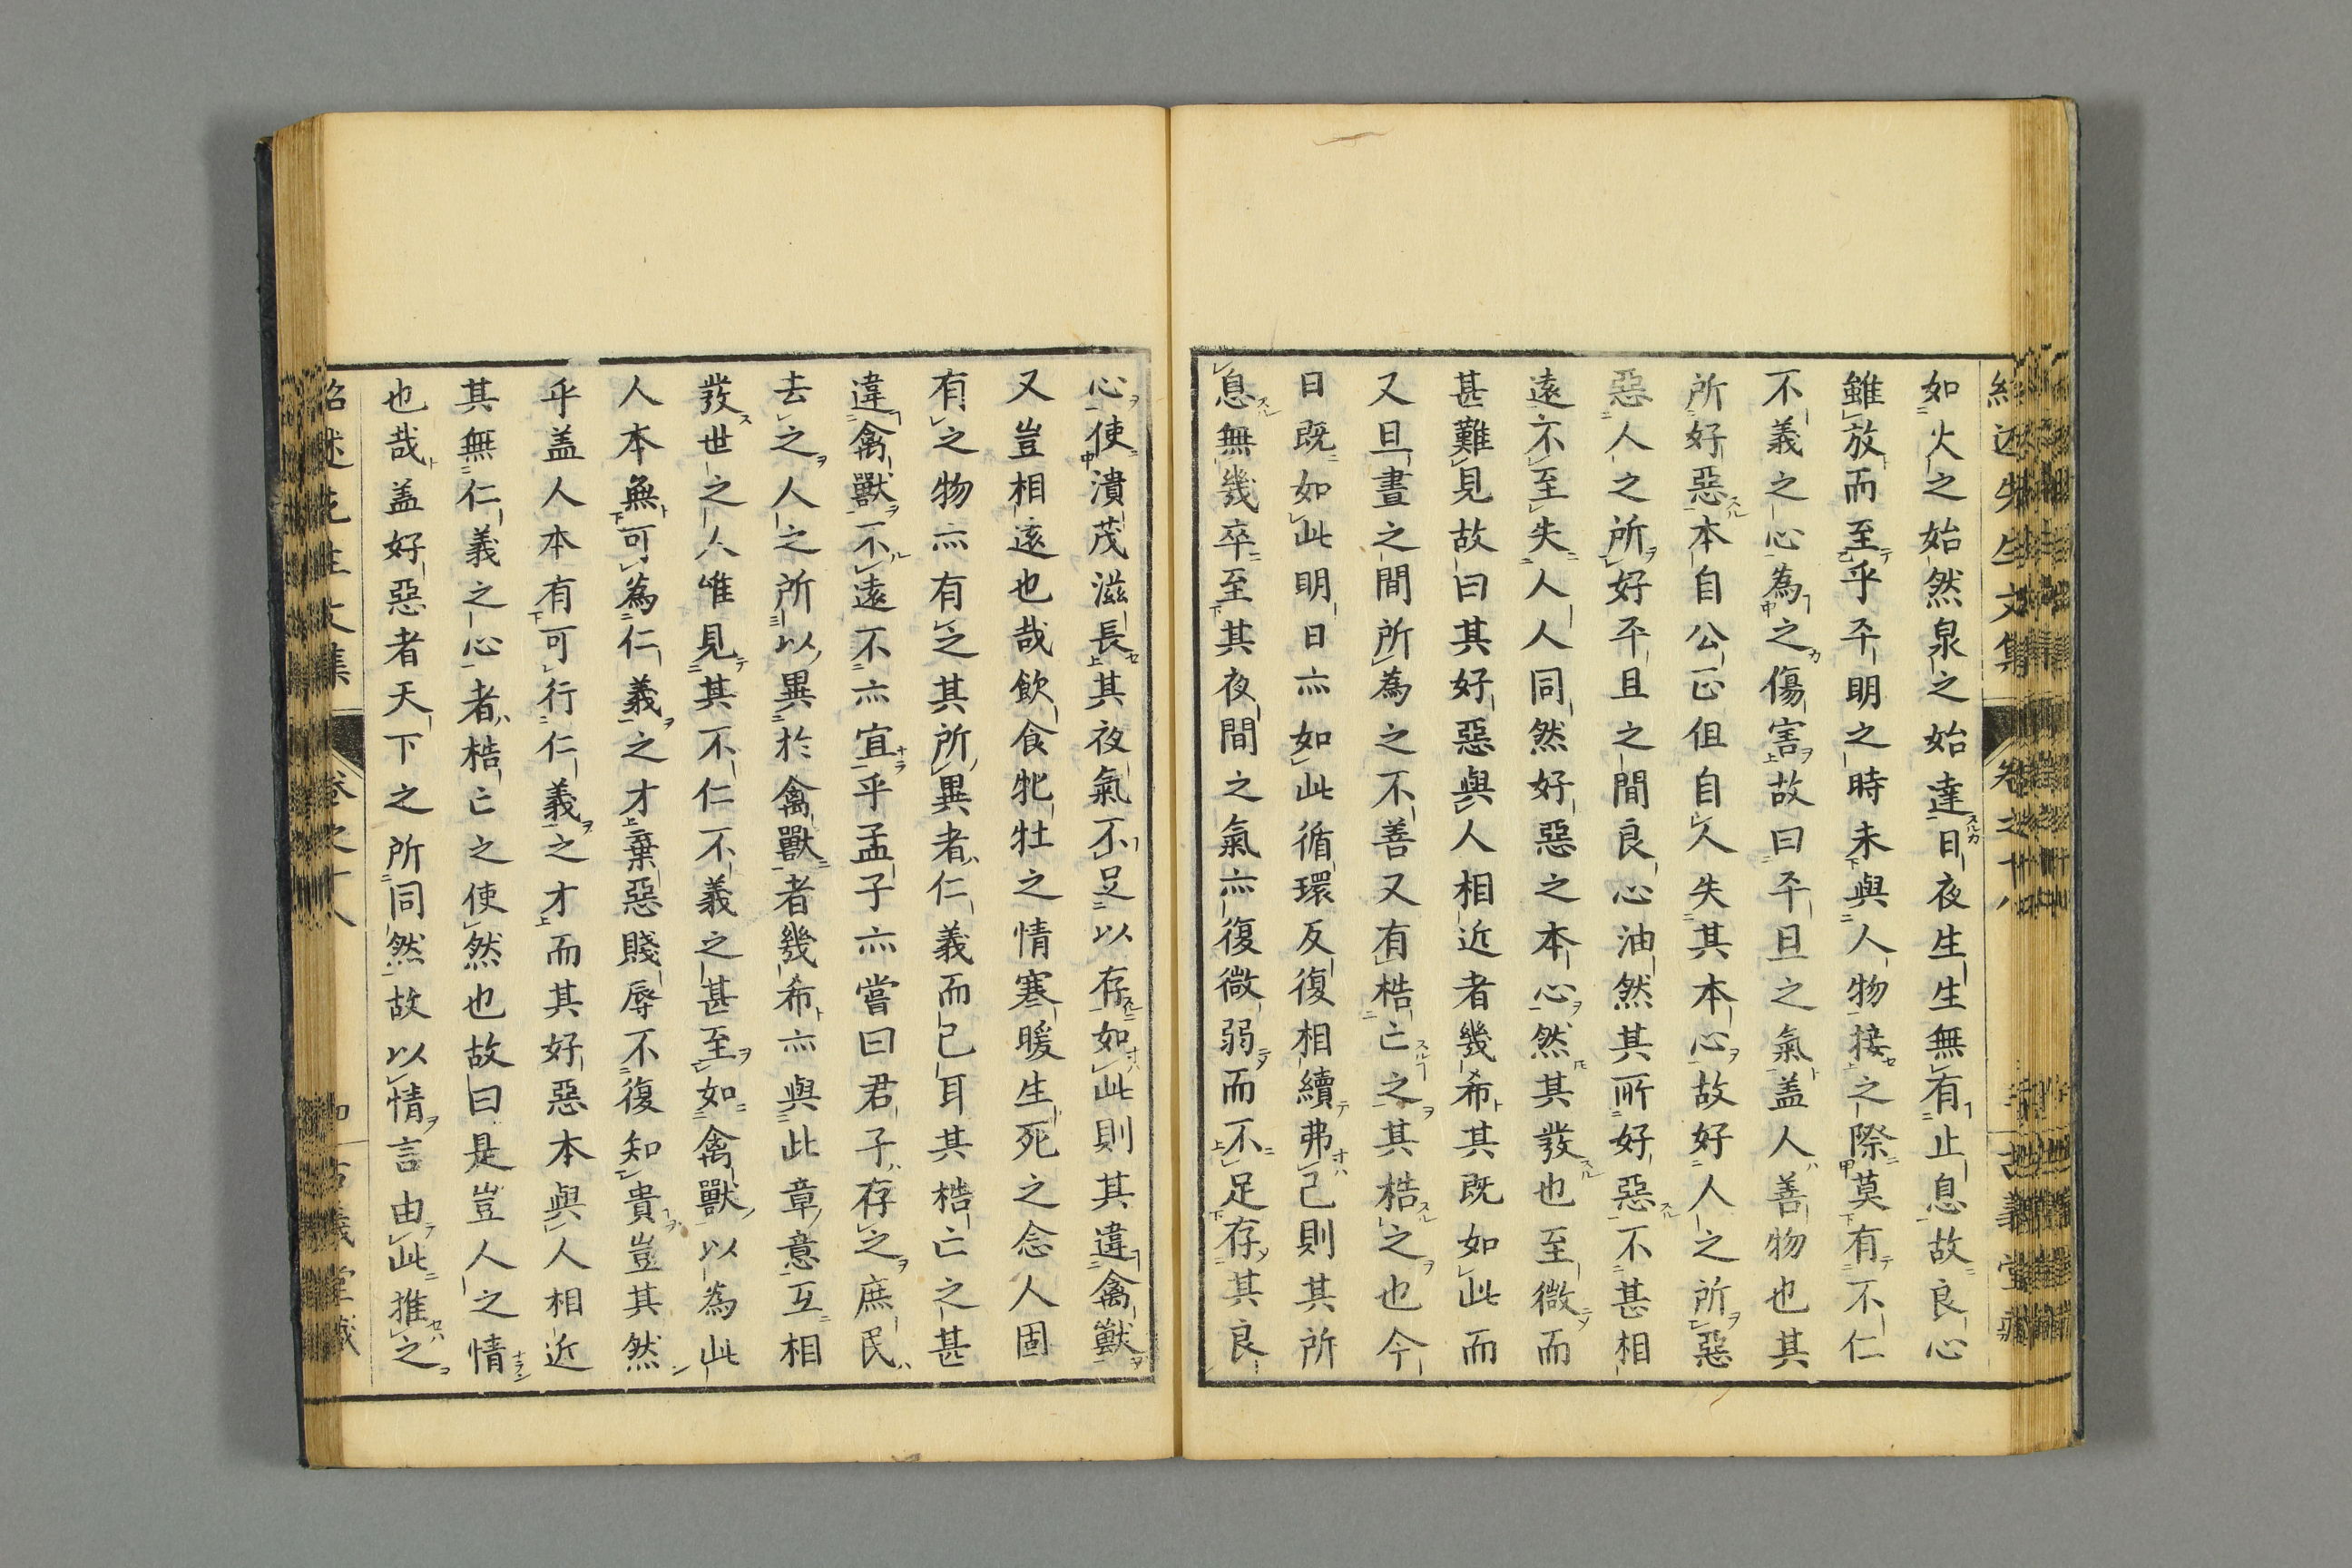 如火之始然泉之始達日夜生生無有止息故良心
雖放而至乎平明之時未與人物接之際莫有不仁
不義之心為之傷害故曰平旦之氣盖人善物也其
所好惡本自公正但自人失其本心故好人之所惡
惡人之所好平且之間良心油然其所好惡不甚相
遠不至失人人同然好惡之本心然其發也至微而
甚難見故曰其好惡與人相近者幾希其既如此而
又旦晝之間所為之不善又有梏亡之其梏之也今
日既如此明日亦如此循環反復相續弗已則其所
息無幾卒至其夜間之氣亦復微弱而不足存其良
心使潰茂滋長其夜氣不足以存如此則其違禽獣
又豈相遠也哉飲食牝牡之情寒暖生死之念人固
有之物亦有之其所異者仁義而已耳其梏亡之甚
違禽獸不遠不亦宜乎孟子亦嘗曰君子存之庶民
去之人之所以異於禽獸者幾希亦與此章意互相
發世之人唯見其不仁不義之甚至如禽獸以為此
人本無可為仁義之才棄惡賤辱不復知貴豈其然
乎盖人本有可行仁義之才而其好惡本與人相近
其無仁義之心者梏亡之使然也故曰是豈人之情
也哉盖好惡者天下之所同然故以情言由此推之
紹述先生文集 卷之十八 古義堂藏